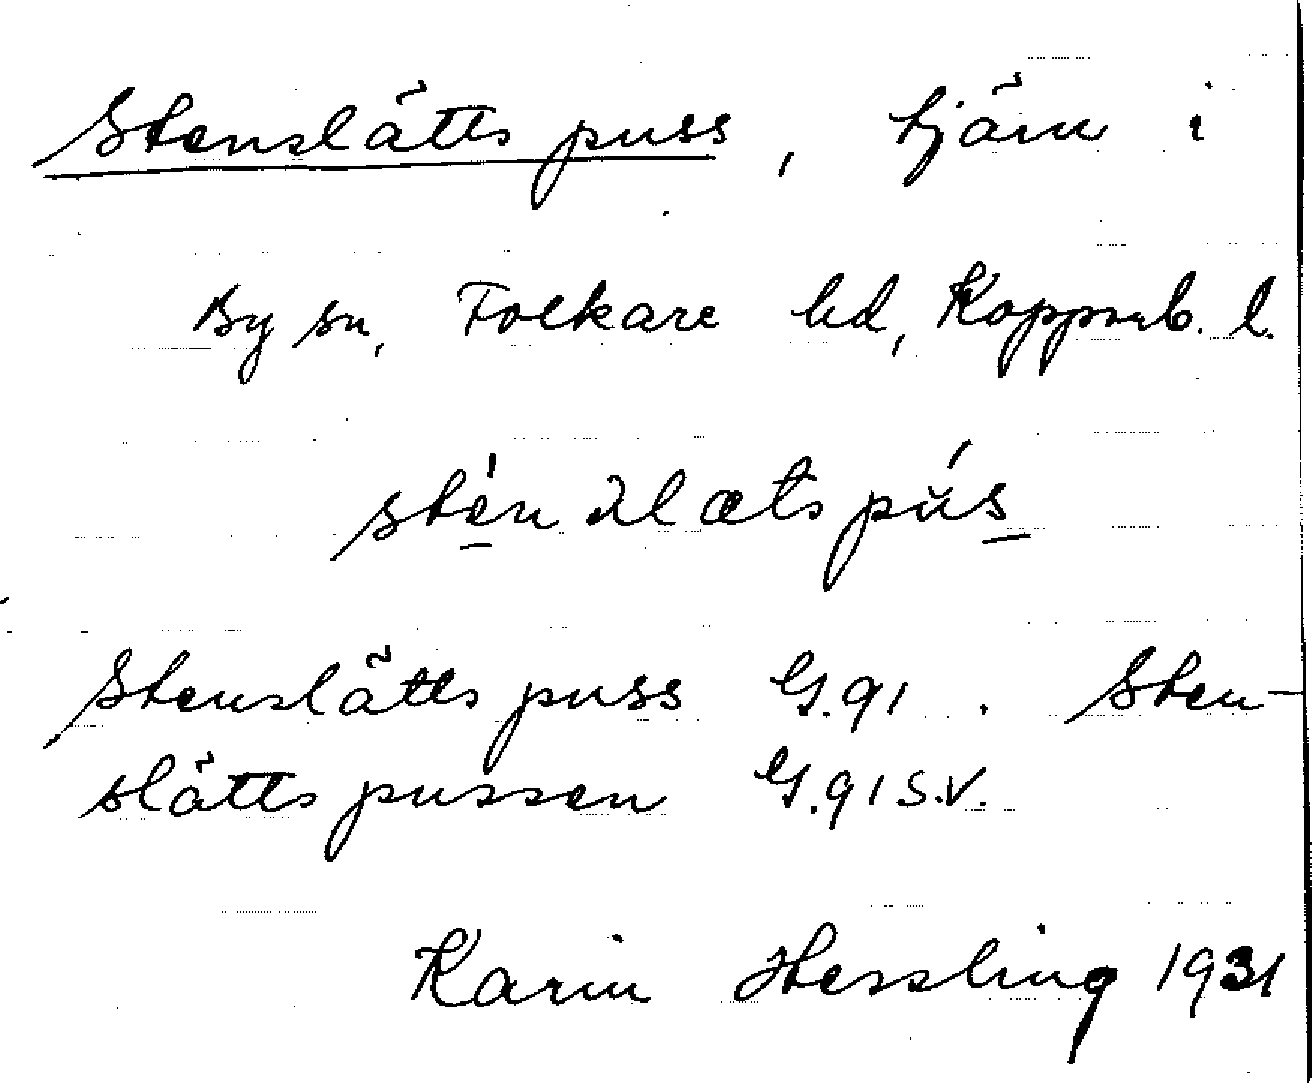 Stenslätts puss, tjärn i
By sn, Folkare hd, Kopparb. l.
Stenslätts puss G.91. Sten-
slätts pussen G.91 S.V.
Karin Hessling 1931